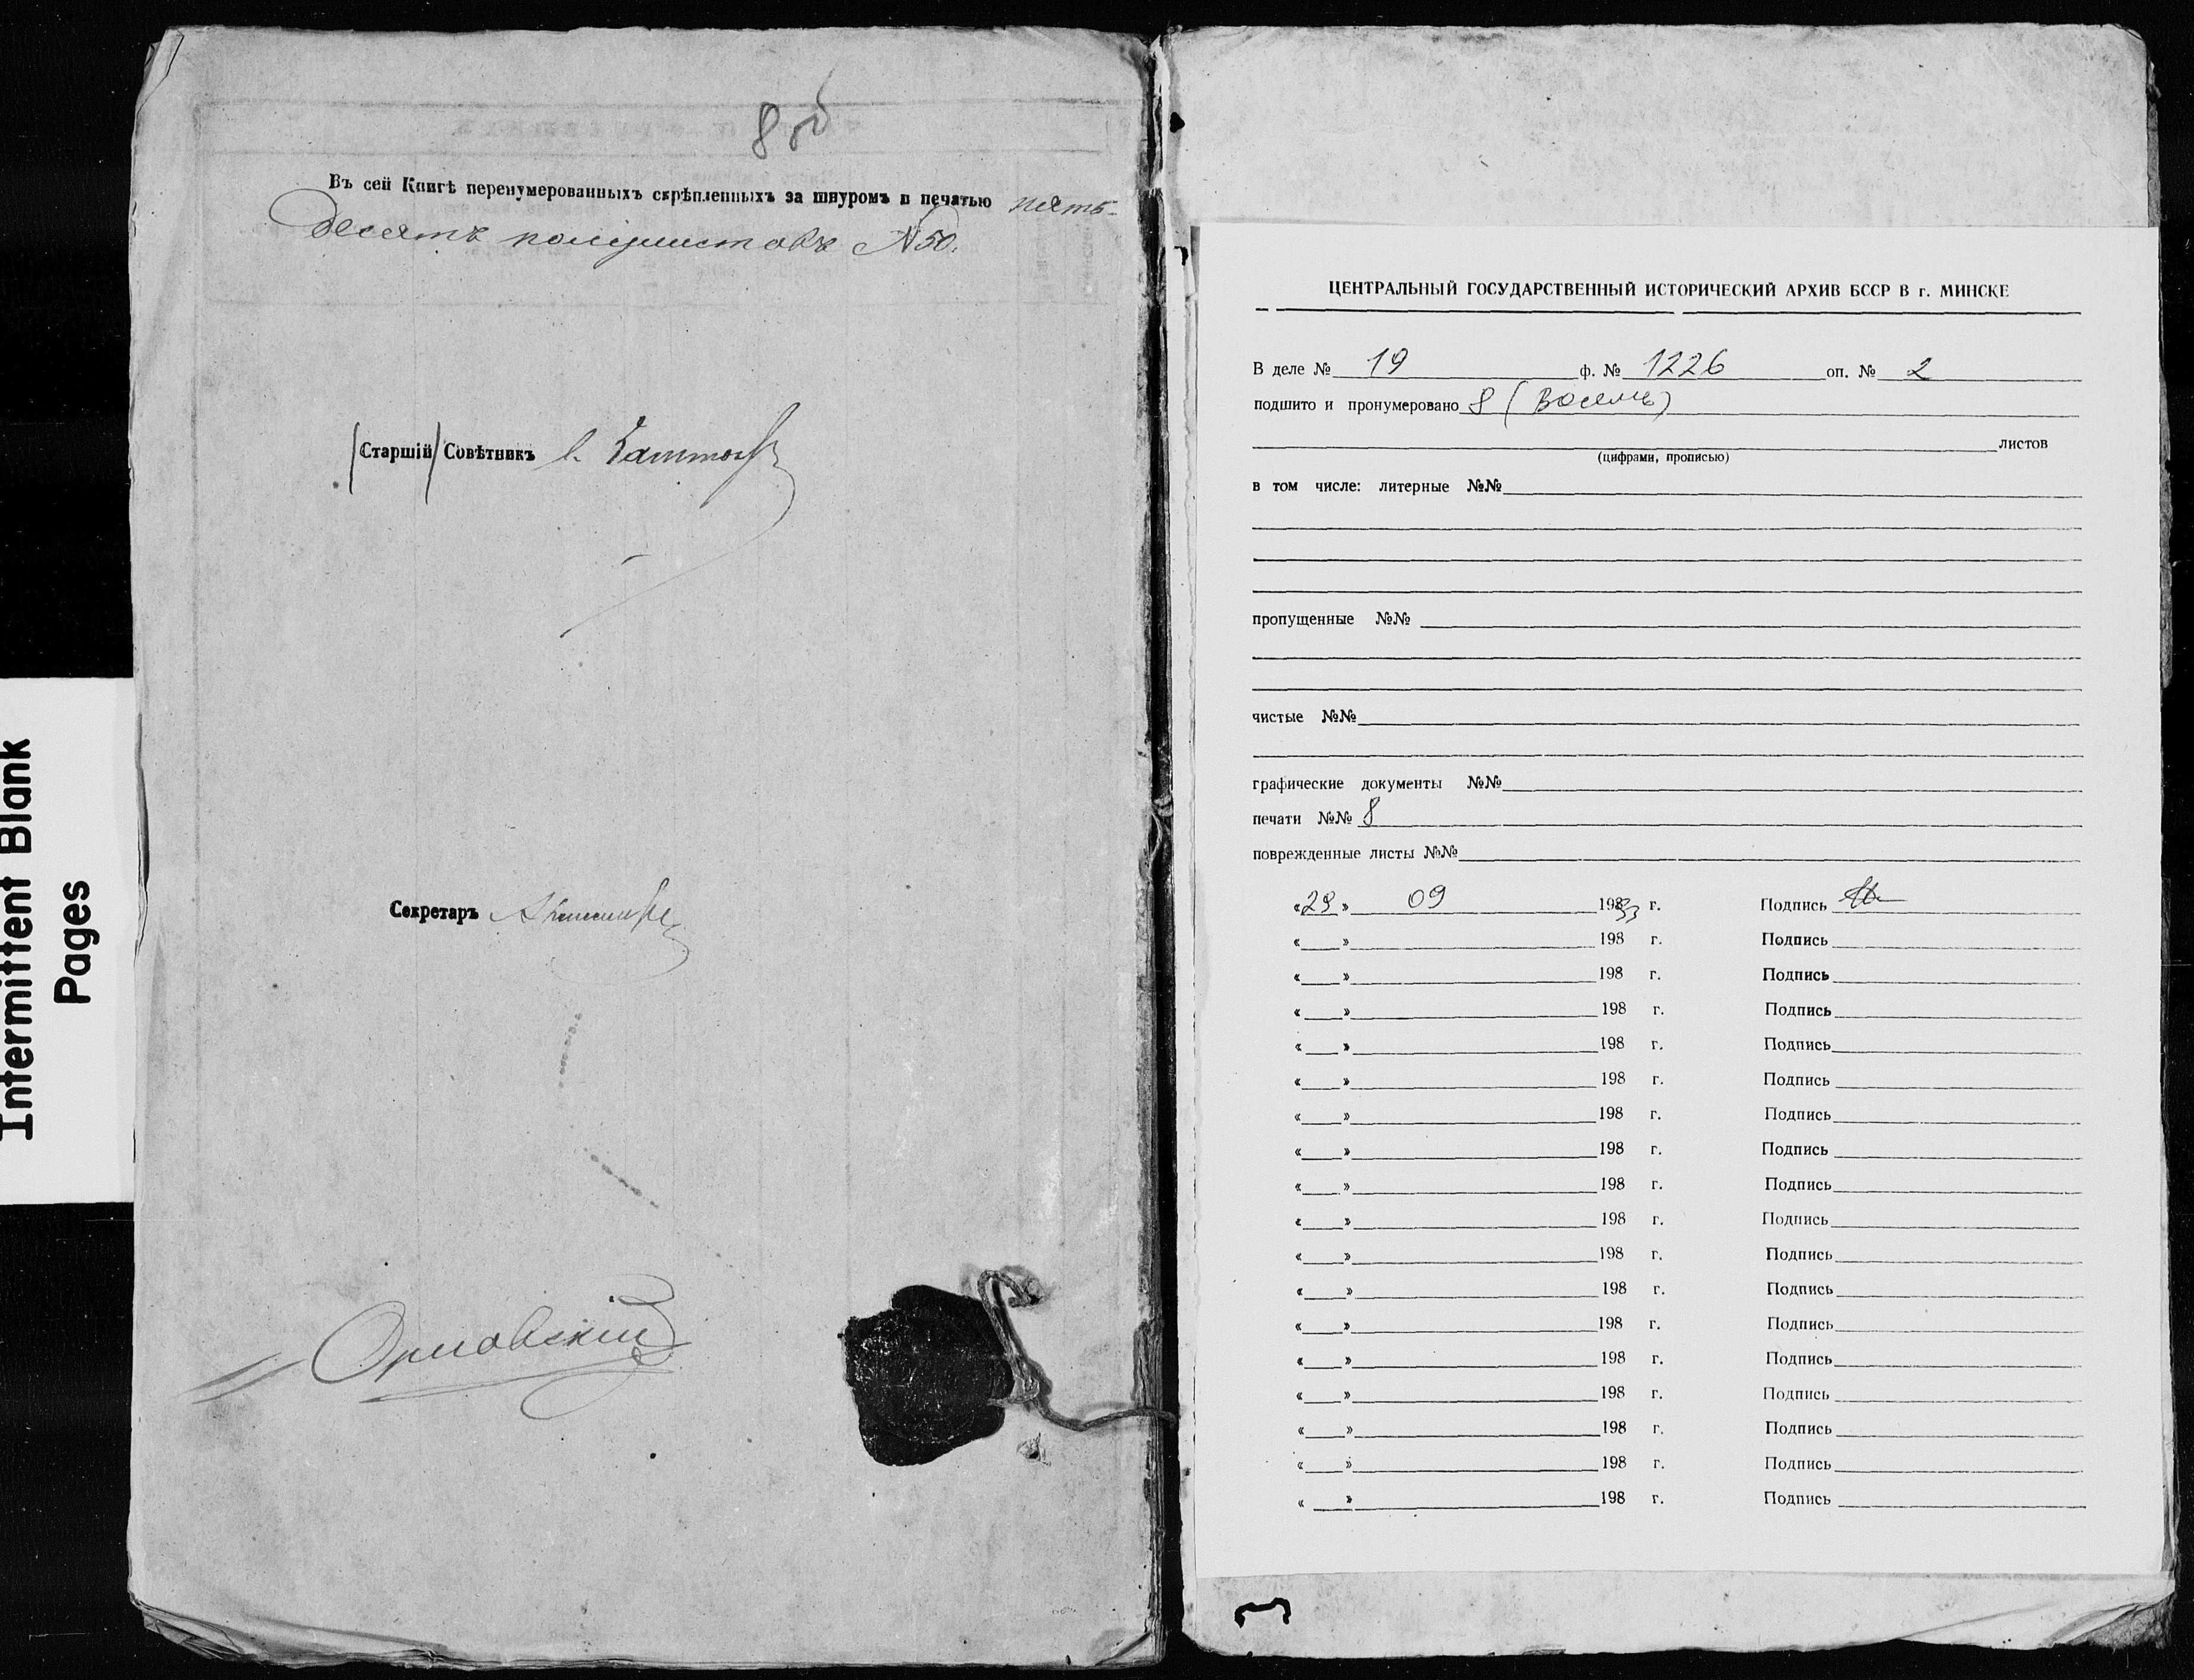 Intermittent Blank
Pages
8об
Въ сей Книгѣ перенумерованныхъ скрѣпленныхъ за шнуромъ и печатью пять-
десятъ полулистовъ №50.
(Старшій) Совѣтникъ
Секретарь
Орловскій
ЦЕНТРАЛЬНЫЙ ГОСУДАРСТВЕННЫЙ ИСТОРИЧЕСКИЙ АРХИВ БССР В г. МИНСКЕ
В деле № 19 ф. № 1226 оп. № 2
подшито и пронумеровано 8 (восемь)
листов
(цифрами, прописью)
в том числе: литерные №№
пропущенные №№
чистые №№
графические документы №№
печати №№ 8
поврежденные листы №№
«29» 09 1983 г. Подпись
« » 198 г. Подпись
« » 198 г. Подпись
« » 198 г. Подпись
« » 198 г. Подпись
« » 198 г. Подпись
« » 198 г. Подпись
« » 198 г. Подпись
« » 198 г. Подпись
« » 198 г. Подпись
« » 198 г. Подпись
« » 198 г. Подпись
« » 198 г. Подпись
« » 198 г. Подпись
« » 198 г. Подпись
« » 198 г. Подпись
« » 198 г. Подпись
« » 198 г. Подпись